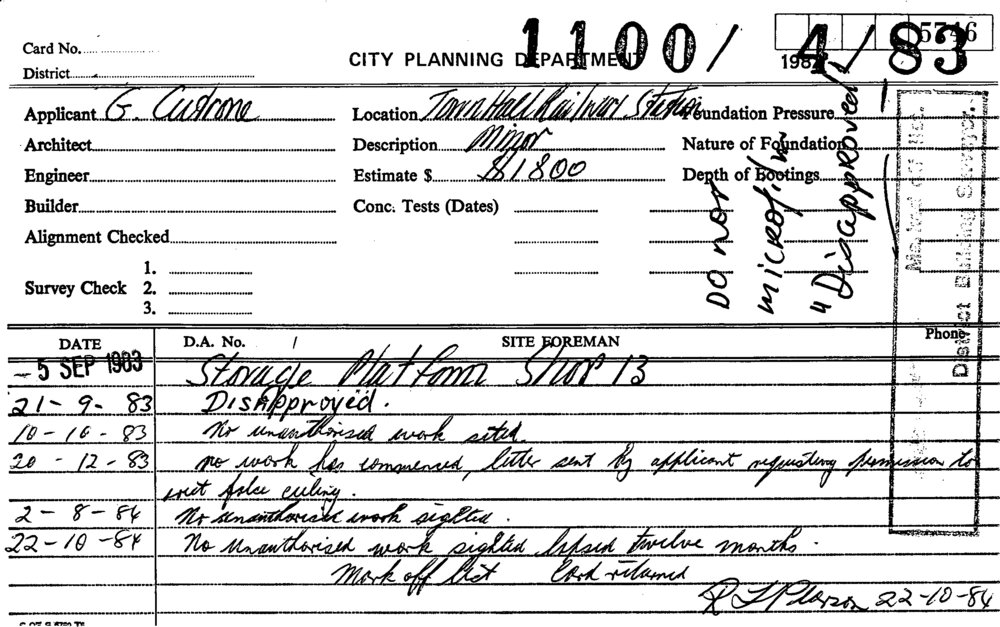 5746
Card No.
CITY PLANNING DEPARTMENT 1100/4/83
198
District
Applicant G. Custrone Location Town Hall Railway Station Foundation Pressure
Architect Description Minor Nature of Foundation
Engineer Estimate $ $1800 Depth of Footings
Builder Conc. Tests (Dates)
Alignment Checked
1.
Survey Check 2.
3.
DO NOT
MICROFILM
"Disapproved"
Marked off list.
District Building Surveyor.
DATE D.A. No. / SITE FOREMAN Phone
- 5 SEP 1983 Storage Platform Shop 13
21-9-83 Disapproved.
10-10-83 No unauthorised work sited.
20-12-83 no work has commenced, letter sent by applicant requesting permission to
erect false ceiling.
2-8-84 No unauthorised work sighted.
22-10-84 No unauthorised work sighted lapsed twelve months.
Mark off list Card returned
R L Pearson 22-10-84